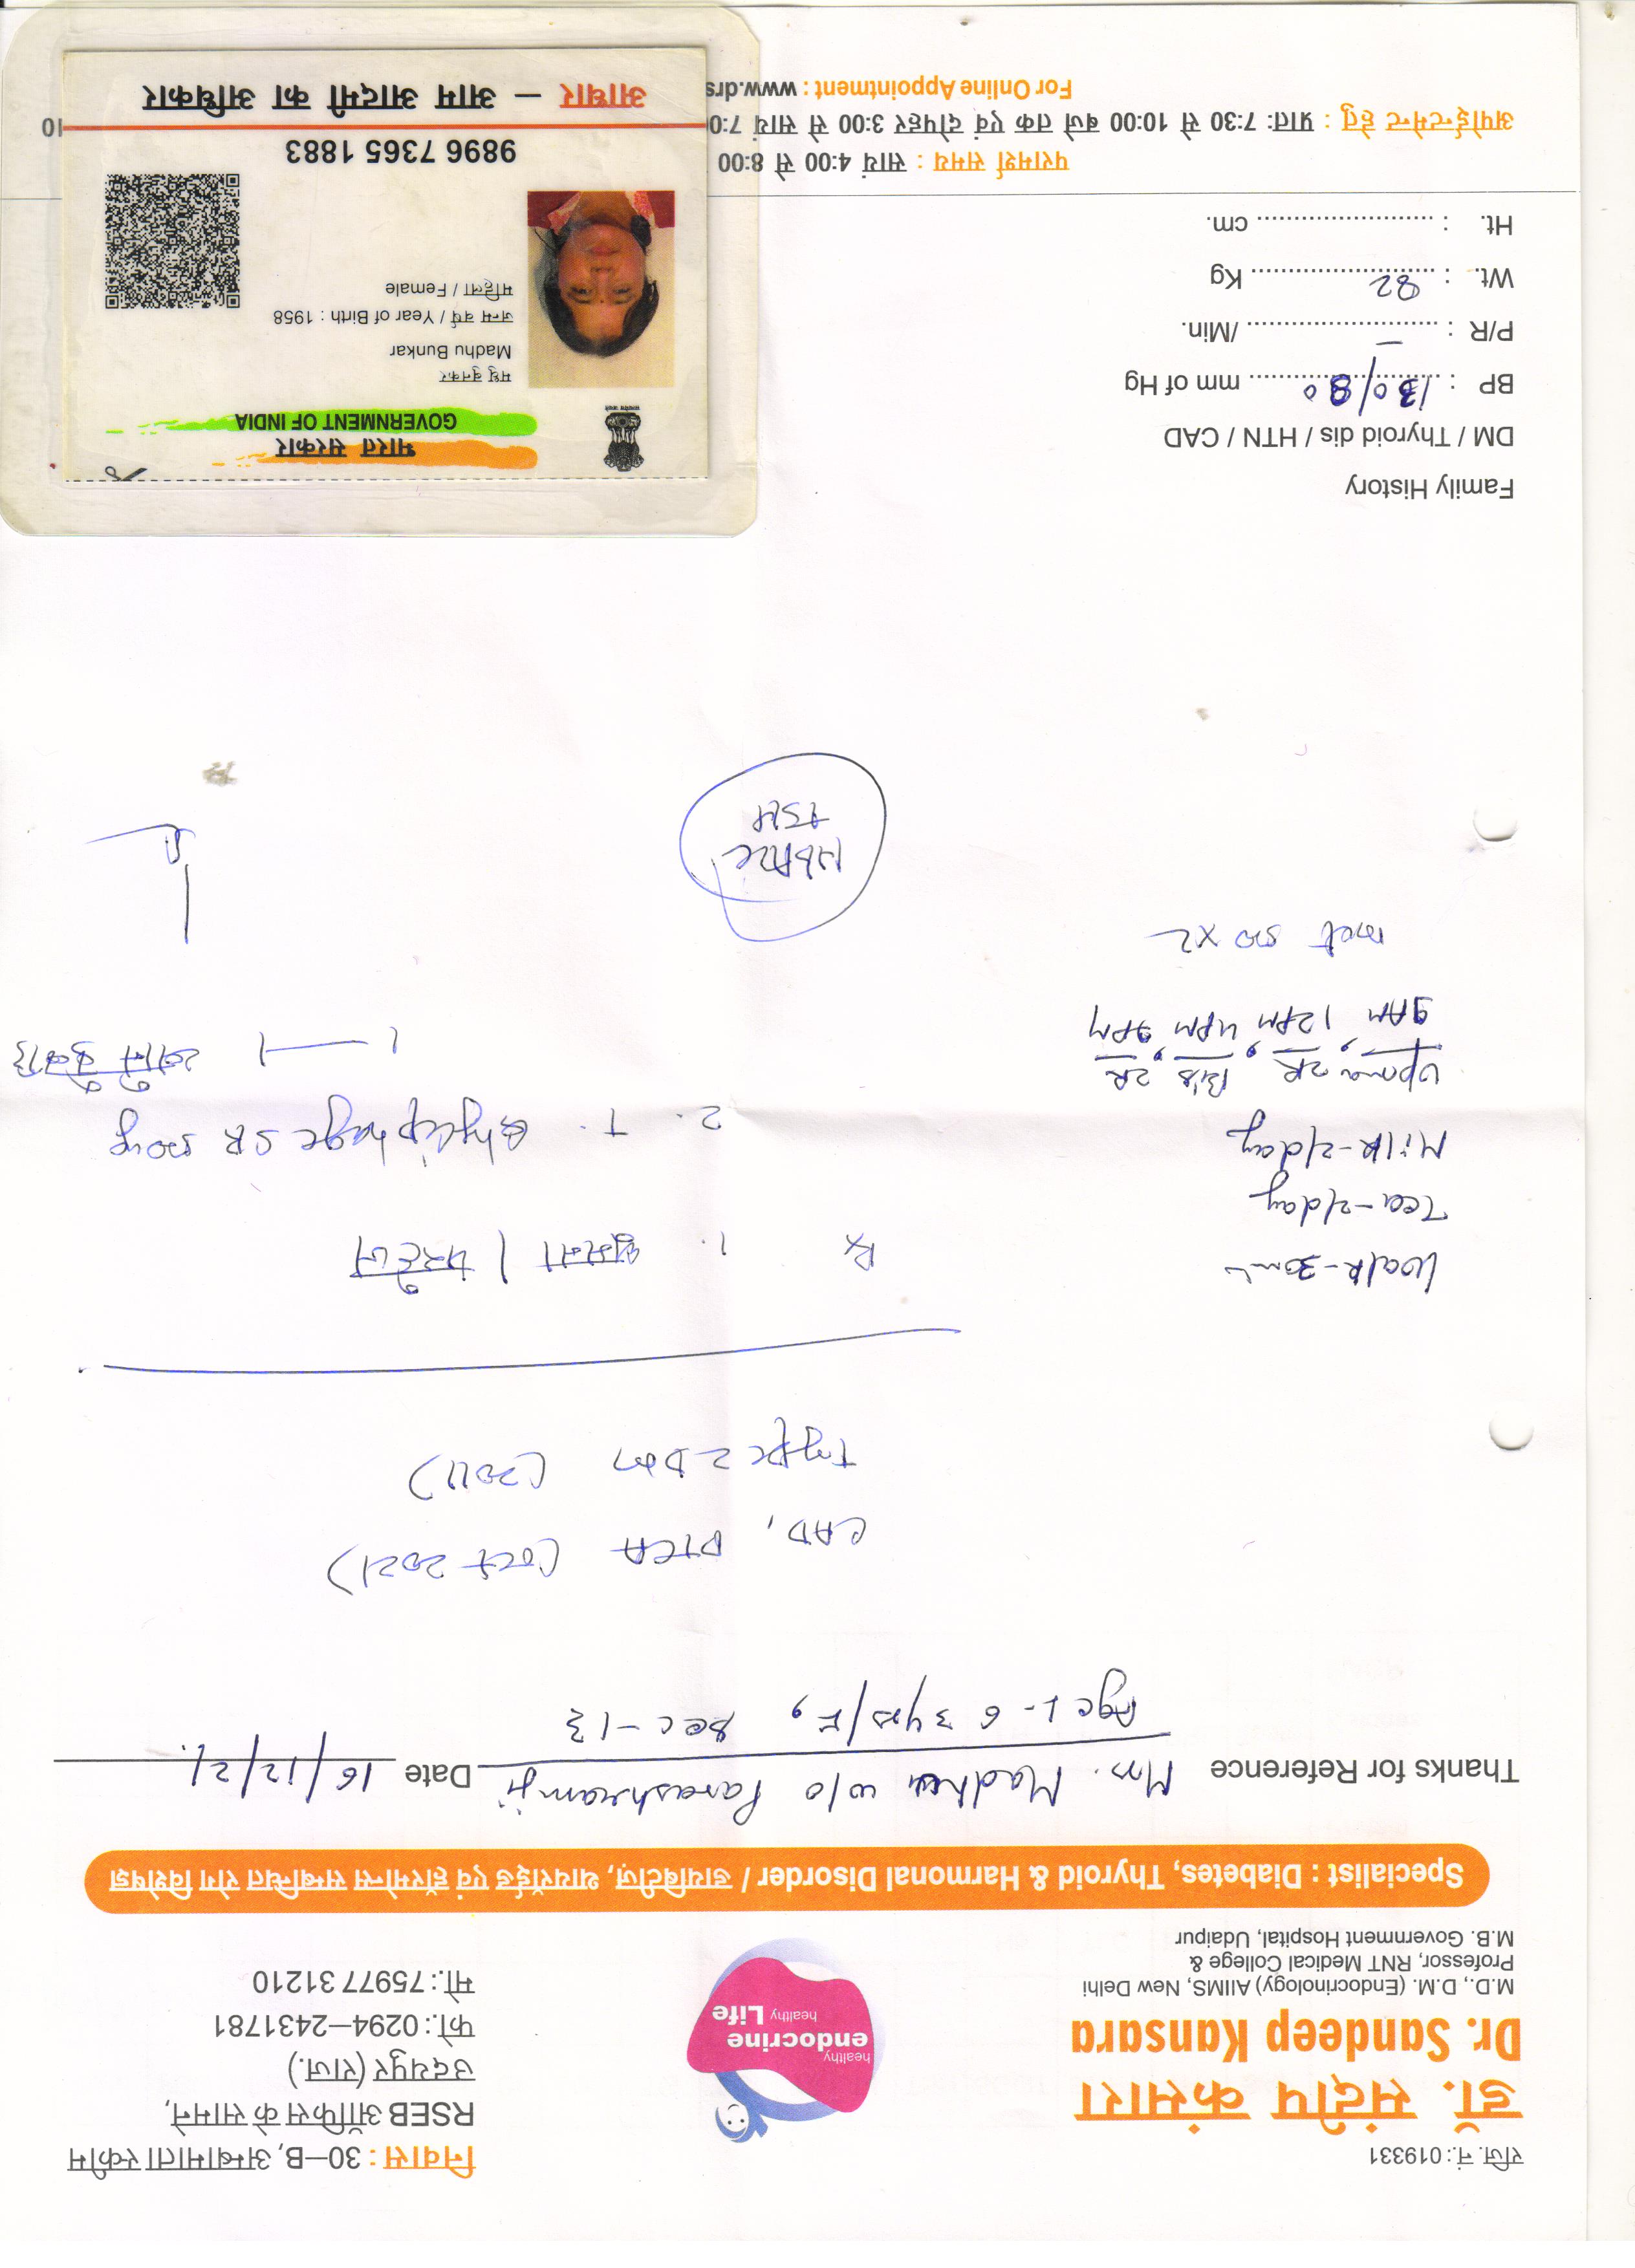 रजि. नं.: 019331
डॉ. संदीप कंसारा
Dr. Sandeep Kansara
M.D., D.M. (Endocrinology) AIIMS, New Delhi
Professor, RNT Medical College &
M.B. Government Hospital, Udaipur
healthy
endocrine
healthy Life
निवास : 30–B, अम्बामाता स्कीम
RSEB ऑफिस के सामने,
उदयपुर (राज.)
फो.: 0294–2431781
मो.: 75977 31210
Specialist : Diabetes, Thyroid & Harmonal Disorder / डायबिटीज़, थायरॉईड एवं हॉरमोन्स सम्बन्धित रोग विशेषज्ञ
Thanks for Reference Mrs. Madhu w/o Parashramji Date 16/12/21.
Age :- 63yrs/F, Sec-13
CAD, PTCA (Oct 2021)
Type 2 DM (2011)
Walk-30 min
Tea-2/day
Milk-2/day
Upma, 2R, Bis, 2R
9AM 12PM 4PM 9PM
met 500 x2
Rx 1. घूमना / परहेज
2. T. Glyciphage SR 500mg
1 — 1
HbA1c
TSH
Family History
DM / Thyroid dis / HTN / CAD
BP : 130/80 mm of Hg
P/R : – /Min.
Wt. : 82 Kg
Ht. : cm.
परामर्श समय : सायं 4:00 से 8:00
अपोईन्टमेन्ट हेतु : प्रातः 7:30 से 10:00 बजे तक एवं दोपहर 3:00 से सायं 7:0
For Online Appointment : www.drs
भारत सरकार
GOVERNMENT OF INDIA
मधु बुनकर
Madhu Bunkar
जन्म वर्ष / Year of Birth : 1958
महिला / Female
9896 7365 1883
आधार – आम आदमी का अधिकार